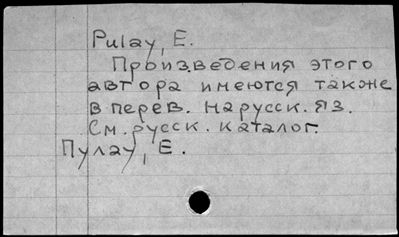 Pulay, E.
Произведения этого
автора имеются также
в перев. на русск. яз.
См. русск. каталог.
Пулау, Е.